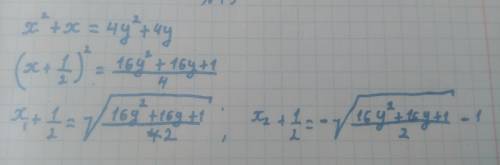 x² + x = 4y² + 4y
(x + 1/2)² = (16y² + 16y + 1)/4
x₁ + 1/2 = √((16y² + 16y + 1)/42) ; x₂ + 1/2 = -√((16y² + 16y + 1)/2) - 1